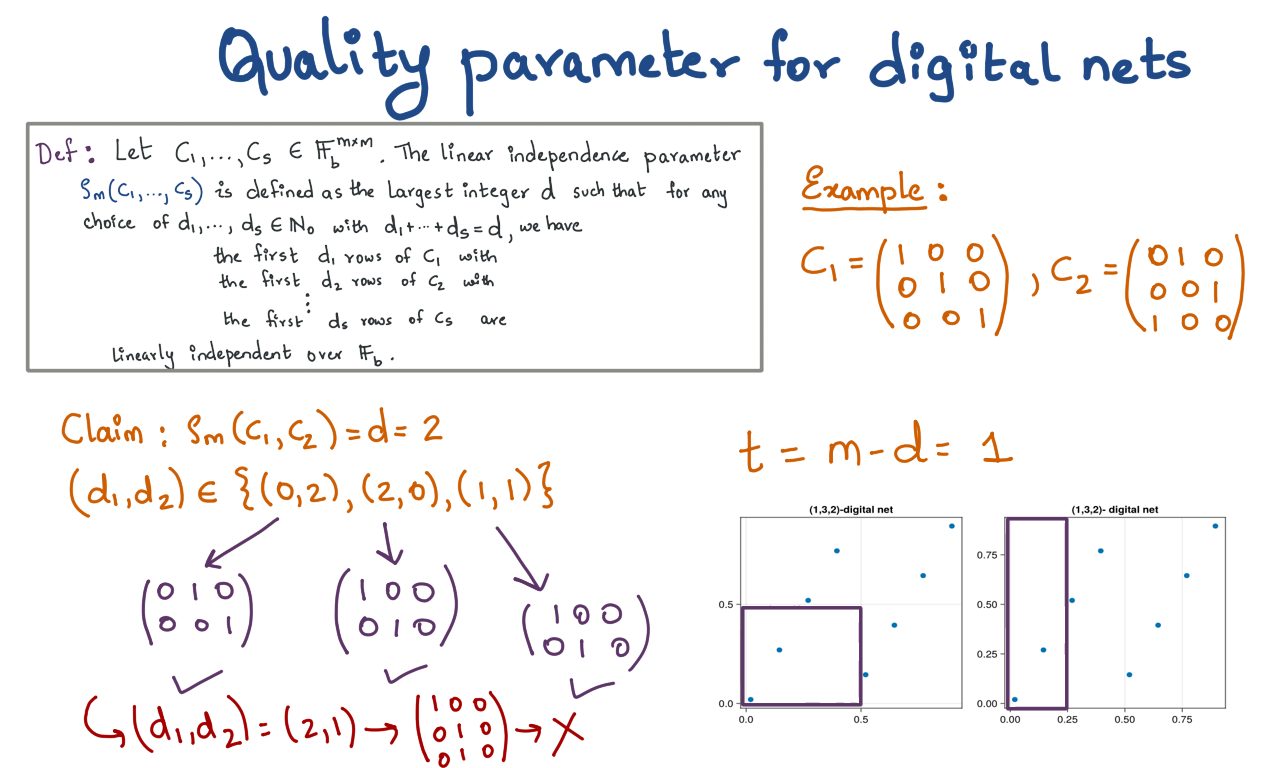 Quality parameter for digital nets
Def: Let C₁,...,Cₛ ∈ 𝔽_b^{m×m}. The linear independence parameter
ρₘ(C₁,...,Cₛ) is defined as the largest integer d such that for any
choice of d₁,...,dₛ ∈ ℕ₀ with d₁+...+dₛ=d, we have
the first d₁ rows of C₁ with
the first d₂ rows of C₂ with
⋮
the first dₛ rows of Cₛ are
linearly independent over 𝔽_b.
Example:
C₁ = (1 0 0
0 1 0
0 0 1), C₂ = (0 1 0
0 0 1
1 0 0)
Claim: ρₘ(C₁,C₂) = d = 2
(d₁,d₂) ∈ {(0,2),(2,0),(1,1)}
(0 1 0
0 0 1) ✓
(1 0 0
0 1 0) ✓
(1 0 0
0 1 0) ✓
↳ (d₁,d₂) = (2,1) → (1 0 0
0 1 0
0 1 0) → X
t = m-d = 1
(1,3,2)-digital net
0.5
0.0
0.0 0.5
(1,3,2)- digital net
0.75
0.50
0.25
0.00
0.00 0.25 0.50 0.75